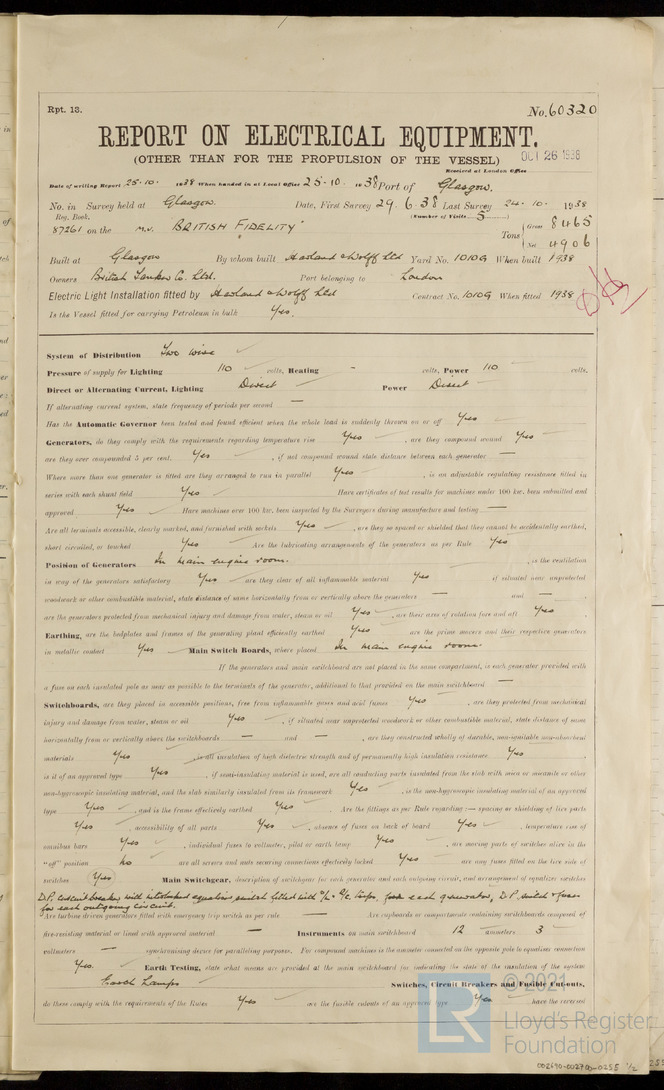 Rpt. 13.
No. 60320
REPORT ON ELECTRICAL EQUIPMENT.
(OTHER THAN FOR THE PROPULSION OF THE VESSEL) OCT 26 1938
Received at London Office
Date of writing Report 25.10. 1938 When handed in at Local Office 25.10. 1938 Port of Glasgow.
No. in Survey held at Glasgow. Date, First Survey 29.6.38 Last Survey 24.10. 1938
Reg. Book. (Number of Visits 5)
87261 on the m.v. "BRITISH FIDELITY" Tons { Gross 8465
Net 4906
Built at Glasgow By whom built Harland & Wolff Ltd Yard No. 1010G When built 1938
Owners British Tanker Co. Ltd. Port belonging to London
Electric Light Installation fitted by Harland & Wolff Ltd Contract No. 1010G When fitted 1938
Is the Vessel fitted for carrying Petroleum in bulk Yes.
System of Distribution Two wire
Pressure of supply for Lighting 110 volts, Heating - volts, Power 110 volts.
Direct or Alternating Current, Lighting Direct Power Direct
If alternating current system, state frequency of periods per second —
Has the Automatic Governor been tested and found efficient when the whole load is suddenly thrown on or off Yes
Generators, do they comply with the requirements regarding temperature rise Yes, are they compound wound Yes
are they over compounded 5 per cent. Yes, if not compound wound state distance between each generator —
Where more than one generator is fitted are they arranged to run in parallel Yes, is an adjustable regulating resistance fitted in
series with each shunt field Yes Have certificates of test results for machines under 100 kw. been submitted and
approved Yes Have machines over 100 kw. been inspected by the Surveyors during manufacture and testing —
Are all terminals accessible, clearly marked, and furnished with sockets Yes, are they so spaced or shielded that they cannot be accidentally earthed,
short circuited, or touched Yes Are the lubricating arrangements of the generators as per Rule Yes
Position of Generators In main engine room. , is the ventilation
in way of the generators satisfactory Yes are they clear of all inflammable material Yes if situated near unprotected
woodwork or other combustible material, state distance of same horizontally from or vertically above the generators — and —
are the generators protected from mechanical injury and damage from water, steam or oil Yes, are their axes of rotation fore and aft Yes
Earthing, are the bedplates and frames of the generating plant efficiently earthed Yes are the prime movers and their respective generators
in metallic contact Yes Main Switch Boards, where placed In main engine room
If the generators and main switchboard are not placed in the same compartment, is each generator provided with
a fuse on each insulated pole as near as possible to the terminals of the generator, additional to that provided on the main switchboard —
Switchboards, are they placed in accessible positions, free from inflammable gases and acid fumes Yes, are they protected from mechanical
injury and damage from water, steam or oil Yes, if situated near unprotected woodwork or other combustible material, state distance of same
horizontally from or vertically above the switchboards — and —, are they constructed wholly of durable, non-ignitable non-absorbent
materials Yes, is all insulation of high dielectric strength and of permanently high insulation resistance Yes
is it of an approved type Yes, if semi-insulating material is used, are all conducting parts insulated from the slab with mica or micanite or other
non-hygroscopic insulating material, and the slab similarly insulated from its framework Yes, is the non-hygroscopic insulating material of an approved
type Yes, and is the frame effectively earthed Yes Are the fittings as per Rule regarding:— spacing or shielding of live parts
Yes, accessibility of all parts Yes, absence of fuses on back of board Yes, temperature rise of
omnibus bars Yes, individual fuses to voltmeter, pilot or earth lamp Yes, are moving parts of switches alive in the
"off" position No are all screws and nuts securing connections effectively locked Yes are any fuses fitted on the live side of
switches Yes Main Switchgear, description of switchgear for each generator and each outgoing circuit, and arrangement of equalizer switches
D.P. circuit breaker with interlocked equaliser switch fitted with O/L & R/C trips, for each generator, D.P. switch & fuses
for each outgoing circuit.
Are turbine driven generators fitted with emergency trip switch as per rule — Are cupboards or compartments containing switchboards composed of
fire-resisting material or lined with approved material — Instruments on main switchboard 12 ammeters 3
voltmeters — synchronising device for paralleling purposes. For compound machines is the ammeter connected on the opposite pole to equaliser connection
Yes. Earth Testing, state what means are provided at the main switchboard for indicating the state of the insulation of the system
Earth Lamps Switches, Circuit Breakers and Fusible Cut-outs,
do these comply with the requirements of the Rules Yes are the fusible cutouts of an approved type Yes have the reversed
© 2021
LR
Lloyd's Register
Foundation
002690-002700-0255 1/2